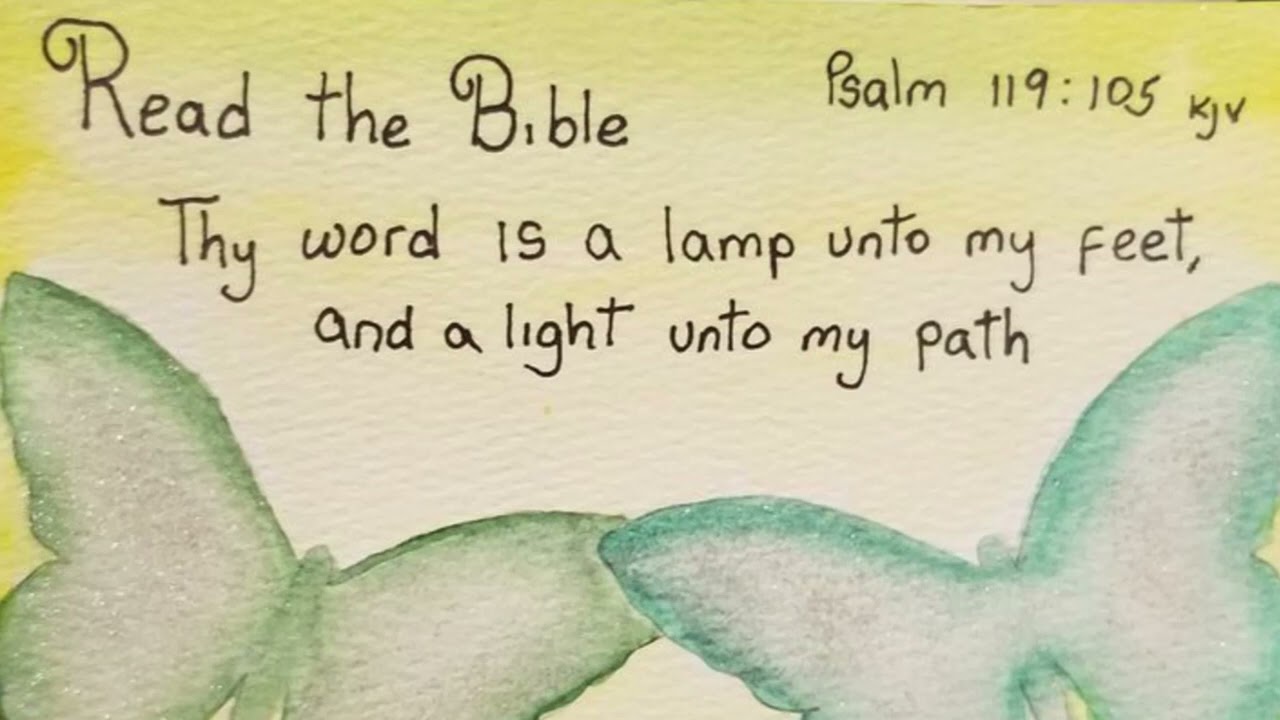 Read the Bible
Psalm 119:105 KJV
Thy word is a lamp unto my feet,
and a light unto my path